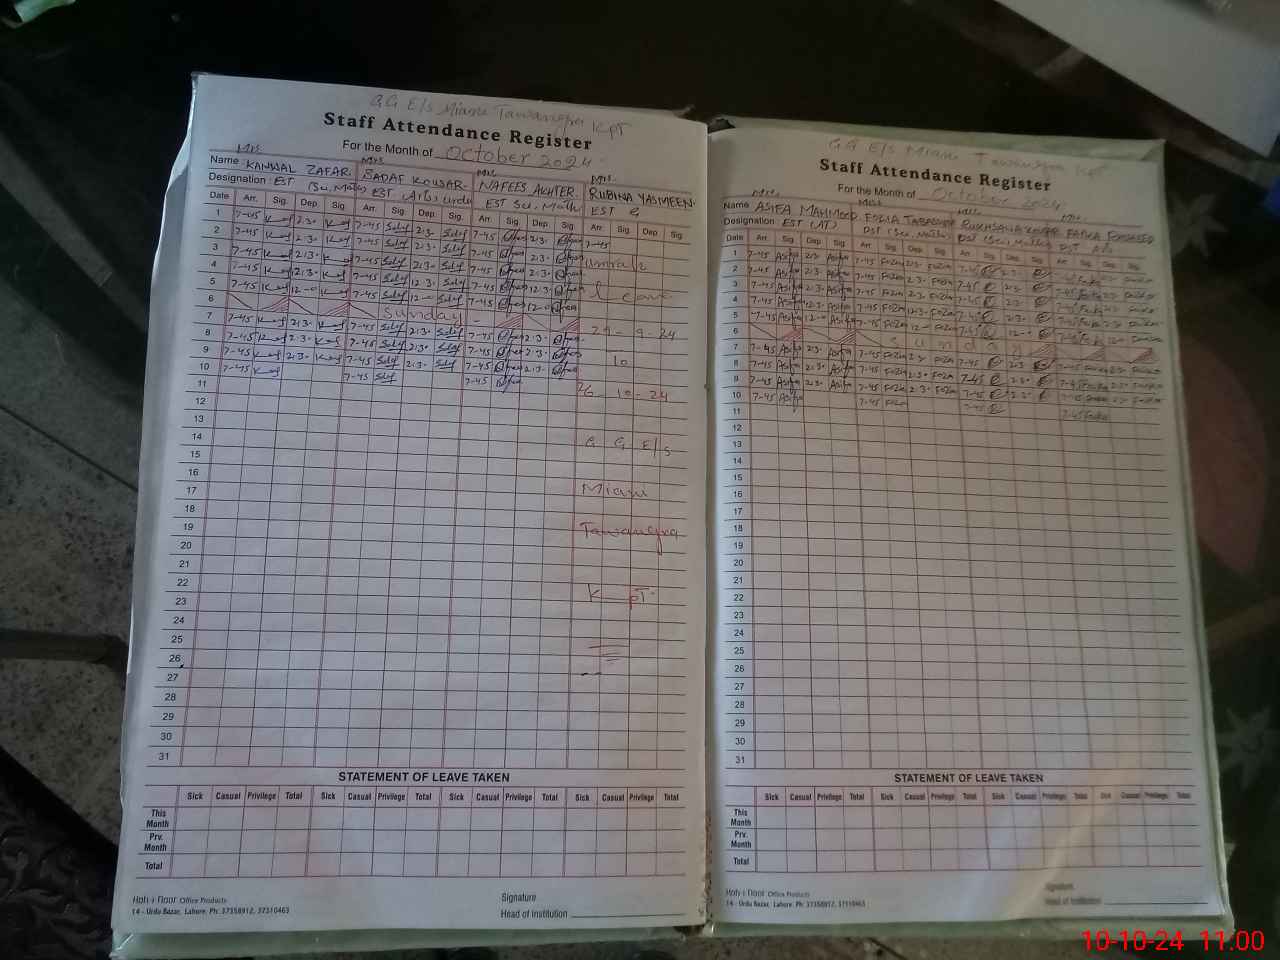 GG E/s Miani Tawangra KPT
Staff Attendance Register
For the Month of October 2024
Mrs. Mrs. Mrs.
Name KANWAL ZAFAR. SADAF KOUSAR. NAFEES AKHTER. RUBINA YASMEEN.
Designation EST (Sc. Math) EST (Arts) urdu EST Sc. Math EST
Date Arr. Sig. Dep. Sig. Arr. Sig. Dep. Sig. Arr. Sig. Dep Sig. Arr. Sig. Dep Sig.
1 7-45 2:3. 7-45 2:3. 7-45 2:3. 7-45
2 7-45 2:3. 7-45 2:3. 7-45 2:3. umrah
3 7-45 2:3. 7-45 2:3. 7-45 2:3.
4 7-45 12:3. 7-45 12:3. 7-45 12:3. Leave
5 7-45 12-0 7-45 12-0 7-45 12-0
6 Sunday 29-9-24
7 7-45 2:3. 7-45 2:3. 7-45 2:3.
8 7-45 2:3. 7-45 2:3. 7-45 2:3. to
9 7-45 2:3. 7-45 2:3. 7-45 2:3.
10 7-45 7-45 7-45
11 26-10-24
12
13
14 G G E/s
15
16
17 Miani
18
19 Tawangra
20
21
22
23 KPT
24
25
26
27
28
29
30
31
STATEMENT OF LEAVE TAKEN
Sick Casual Privilege Total Sick Casual Privilege Total Sick Casual Privilege Total Sick Casual Privilege Total
This Month
Prv. Month
Total
Signature
Head of Institution
Office Products
14 - Urdu Bazar, Lahore. Ph: 37358912, 37310463
GG E/s Miani Tawangra KPT
Staff Attendance Register
For the Month of October 2024
Name ASIFA MAHMOOD FOZIA TABASSUM RUKHSANA KOUSAR
Designation EST (AT) PST (Sci, Math) PST (Sci, Math) PST Arts
Date Arr. Sig Dep Sig Arr. Sig. Dep. Sig. Arr. Sig. Dep Sig. Arr. Sig. Dep. Sig.
1 7-45 Asifa 2:3. Asifa 7-45 Fozia 2:3. Fozia 7-45 2:3. 7-45
2 7-45 Asifa 2:3. Asifa 7-45 Fozia 2:3. Fozia 7-45 2:3. 7-45
3 7-45 Asifa 2:3. Asifa 7-45 Fozia 2:3. Fozia 7-45 2:3. 7-45
4 7-45 Asifa 12:3. Asifa 7-45 Fozia 12:3. Fozia 7-45 7-45
5 7-45 Asifa 12-0 Asifa 7-45 Fozia 12-0 Fozia 7-45 12-0 7-45
6 Sunday
7 7-45 Asifa 2:3. Asifa 7-45 Fozia 2:3. Fozia 7-45 2:3. 7-45
8 7-45 Asifa 2:3. Asifa 7-45 Fozia 2:3. Fozia 7-45 2:3. 7-45
9 7-45 Asifa 2:3. Asifa 7-45 Fozia 2:3. Fozia 7-45 2:3. 7-45
10 7-45 Asifa 7-45 Fozia 7-45 7-45
11
12
13
14
15
16
17
18
19
20
21
22
23
24
25
26
27
28
29
30
31
STATEMENT OF LEAVE TAKEN
Sick Casual Privilege Total Sick Casual Privilege Total Sick Casual Privilege Total Sick Casual Privilege Total
This Month
Prv. Month
Total
Signature
Head of Institution
Office Products
14 - Urdu Bazar, Lahore. Ph: 37358912, 37310463
10-10-24 11:00